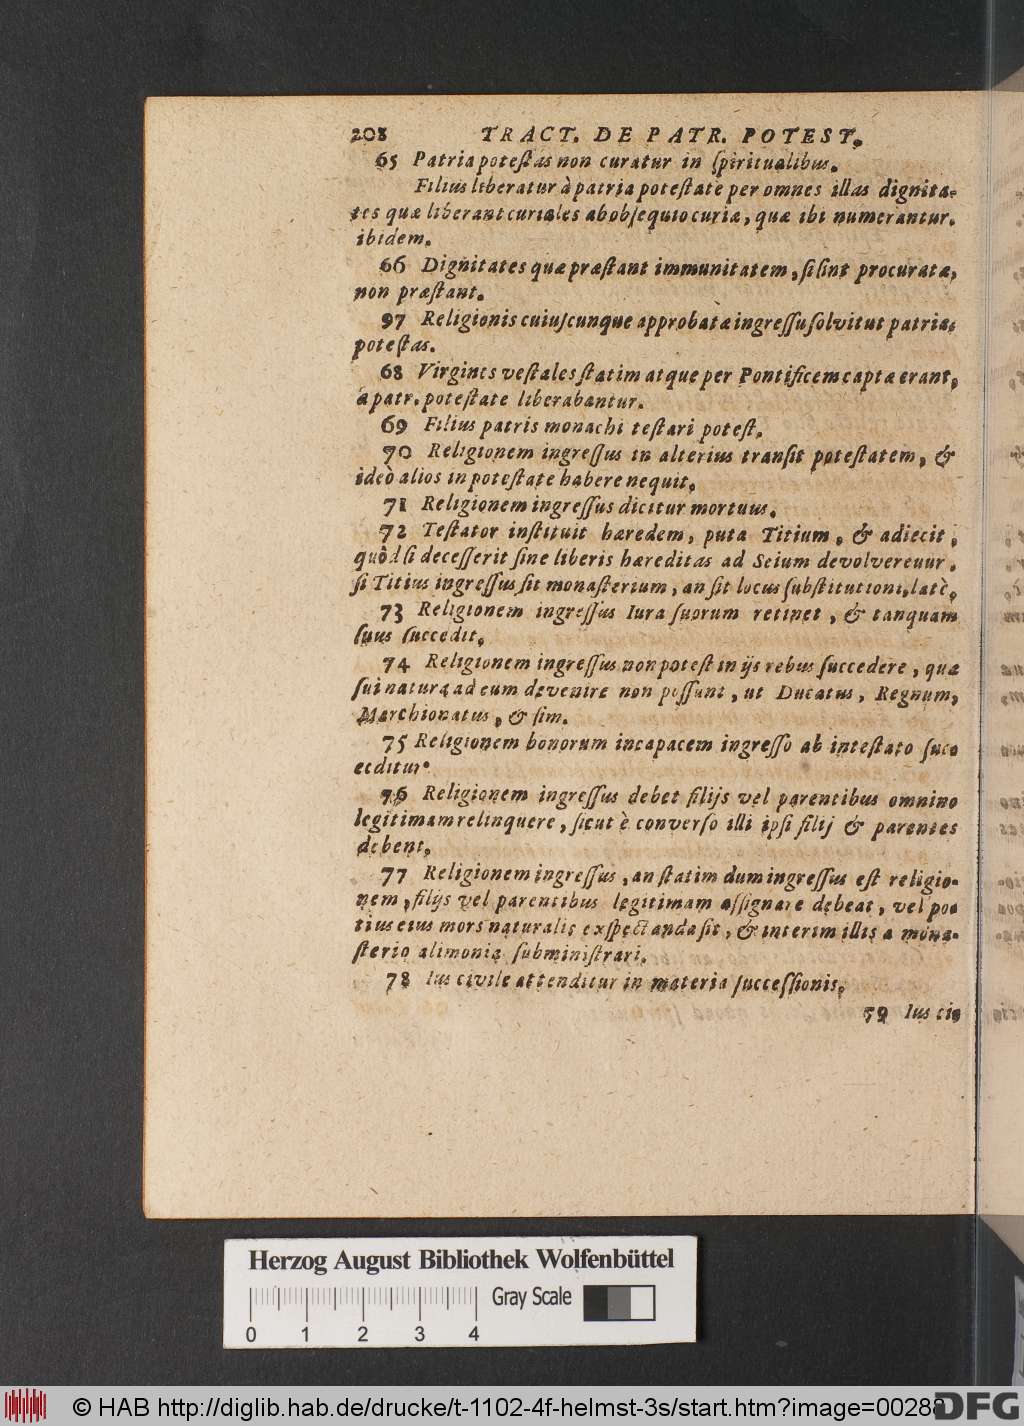 208 TRACT. DE PATR. POTEST.
65 Patria potestas non curatur in spiritualibus.
Filius liberatur à patria potestate per omnes illas dignita-
tes quæ liberant curiales ab obsequio curiæ, quæ ibi numerantur.
ibidem.
66 Dignitates quæ præstant immunitatem, si sint procuratæ,
non præstant.
97 Religionis cuiuscunque approbatæ ingressu solvitut patria
potestas.
68 Virgines vestales statim atque per Pontificem captæ erant,
à patr. potestate liberabantur.
69 Filius patris monachi testari potest.
70 Religionem ingressus in alterius transit potestatem, &
ideò alios in potestate habere nequit.
71 Religionem ingressus dicitur mortuus.
72 Testator instituit hæredem, puta Titium, & adiecit,
quòd si decesserit sine liberis hæreditas ad Seium devolveretur.
si Titius ingressus sit monasterium, an sit locus substitutioni, latè.
73 Religionem ingressus Iura suorum retinet, & tanquam
suus succedit.
74 Religionem ingressus non potest in ijs rebus succedere, quæ
sui natura ad eum devenire non possunt, ut Ducatus, Regnum,
Marchionatus, & sim.
75 Religionem bonorum incapacem ingresso ab intestato suc-
ceditur.
76 Religionem ingressus debet filijs vel parentibus omnino
legitimam relinquere, sicut è converso illi ipsi filij & parentes
debent.
77 Religionem ingressus, an statim dum ingressus est religio-
nem, filijs vel parentibus legitimam assignare debeat, vel po-
tius eius mors naturalis expectanda sit, & interim illis a mona-
sterio alimonia subministrari.
78 Ius civile attenditur in materia successionis.
79 Ius ci-
Herzog August Bibliothek Wolfenbüttel
Gray Scale
0 1 2 3 4
© HAB http://diglib.hab.de/drucke/t-1102-4f-helmst-3s/start.htm?image=00288
DFG